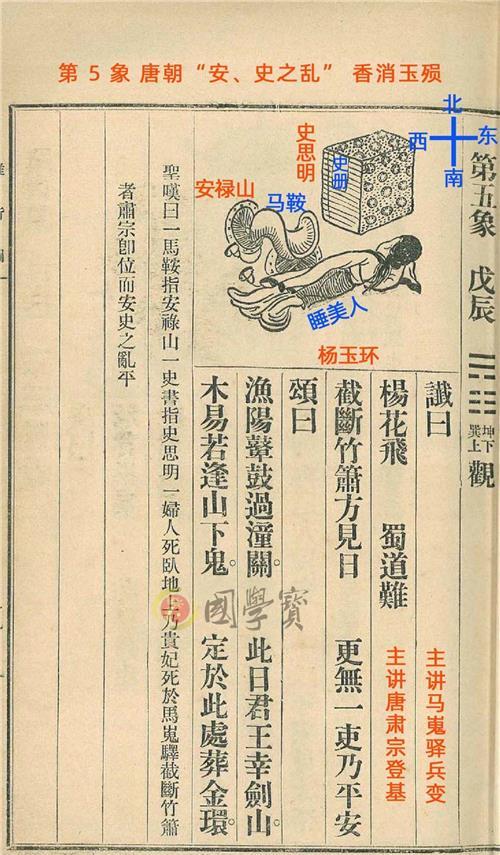 第 5 象 唐朝“安、史之乱” 香消玉殒
北
西 东
南
第五象 戊辰
坤下
巽上
觀
史思明
史册
安禄山
马鞍
睡美人
杨玉环
讖曰
楊花飛 蜀道難
截斷竹簫方見日 更無一吏乃平安
頌曰
漁陽鼙鼓過潼關。此日君王幸劍山。
木易若逢山下鬼。定於此處葬金環。
主讲马嵬驿兵变
主讲唐肃宗登基
聖嘆曰一馬鞍指安祿山一史書指史思明一婦人死臥地上乃貴妃死於馬嵬驛截斷竹簫
者肅宗卽位而安史之亂平
國學寶